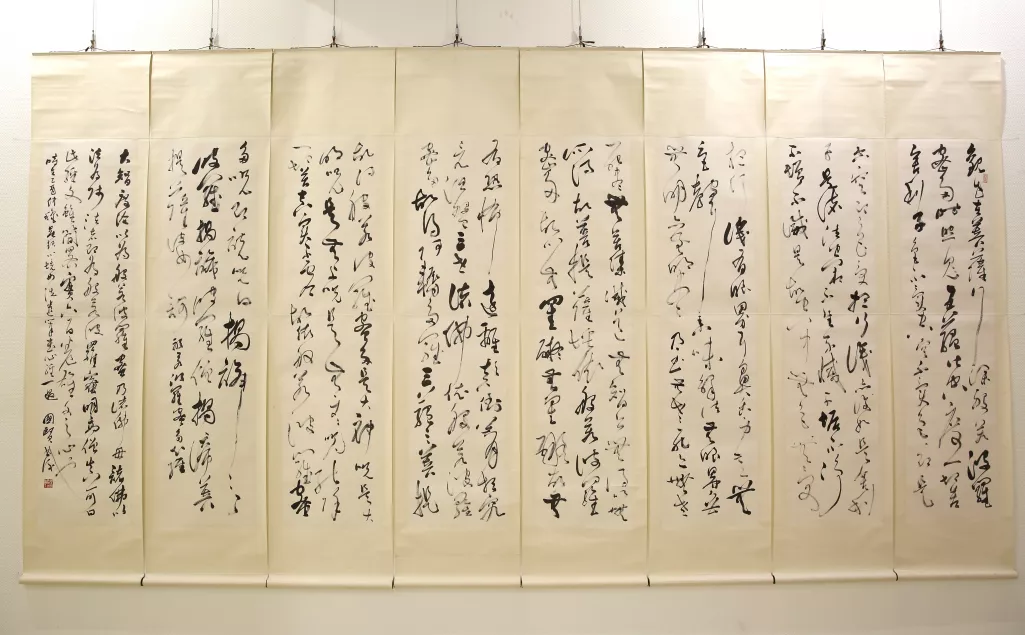 觀自在菩薩行深般若波羅
蜜多時照見五蘊皆空度一切苦
厄舍利子色不異空空不異色色即是
空空即是色受想行識亦復如是舍利
子是諸法空相不生不滅不垢不淨
不增不減是故空中無色無受
想行識無眼耳鼻舌身意無
色聲香味觸法無眼界無
無明亦無無明盡乃至無老死亦無老
死盡無苦集滅道無智亦無得以無
所得故菩提薩埵依般若波羅
蜜多故心無罣礙無罣礙故無
有恐怖遠離顛倒夢想究
竟涅槃三世諸佛依般若波羅
蜜多故得阿耨多羅三藐三菩提
故知般若波羅蜜多是大神咒是大
明咒是無上咒是無等等咒能除
一切苦真實不虛故說般若波羅蜜
多咒即說咒曰揭諦揭諦
波羅揭諦波羅僧揭諦菩
提薩婆訶 般若波羅蜜多心經
大智度論以為般若波羅蜜乃諸佛母諸佛以
法為師法者即為般若波羅蜜